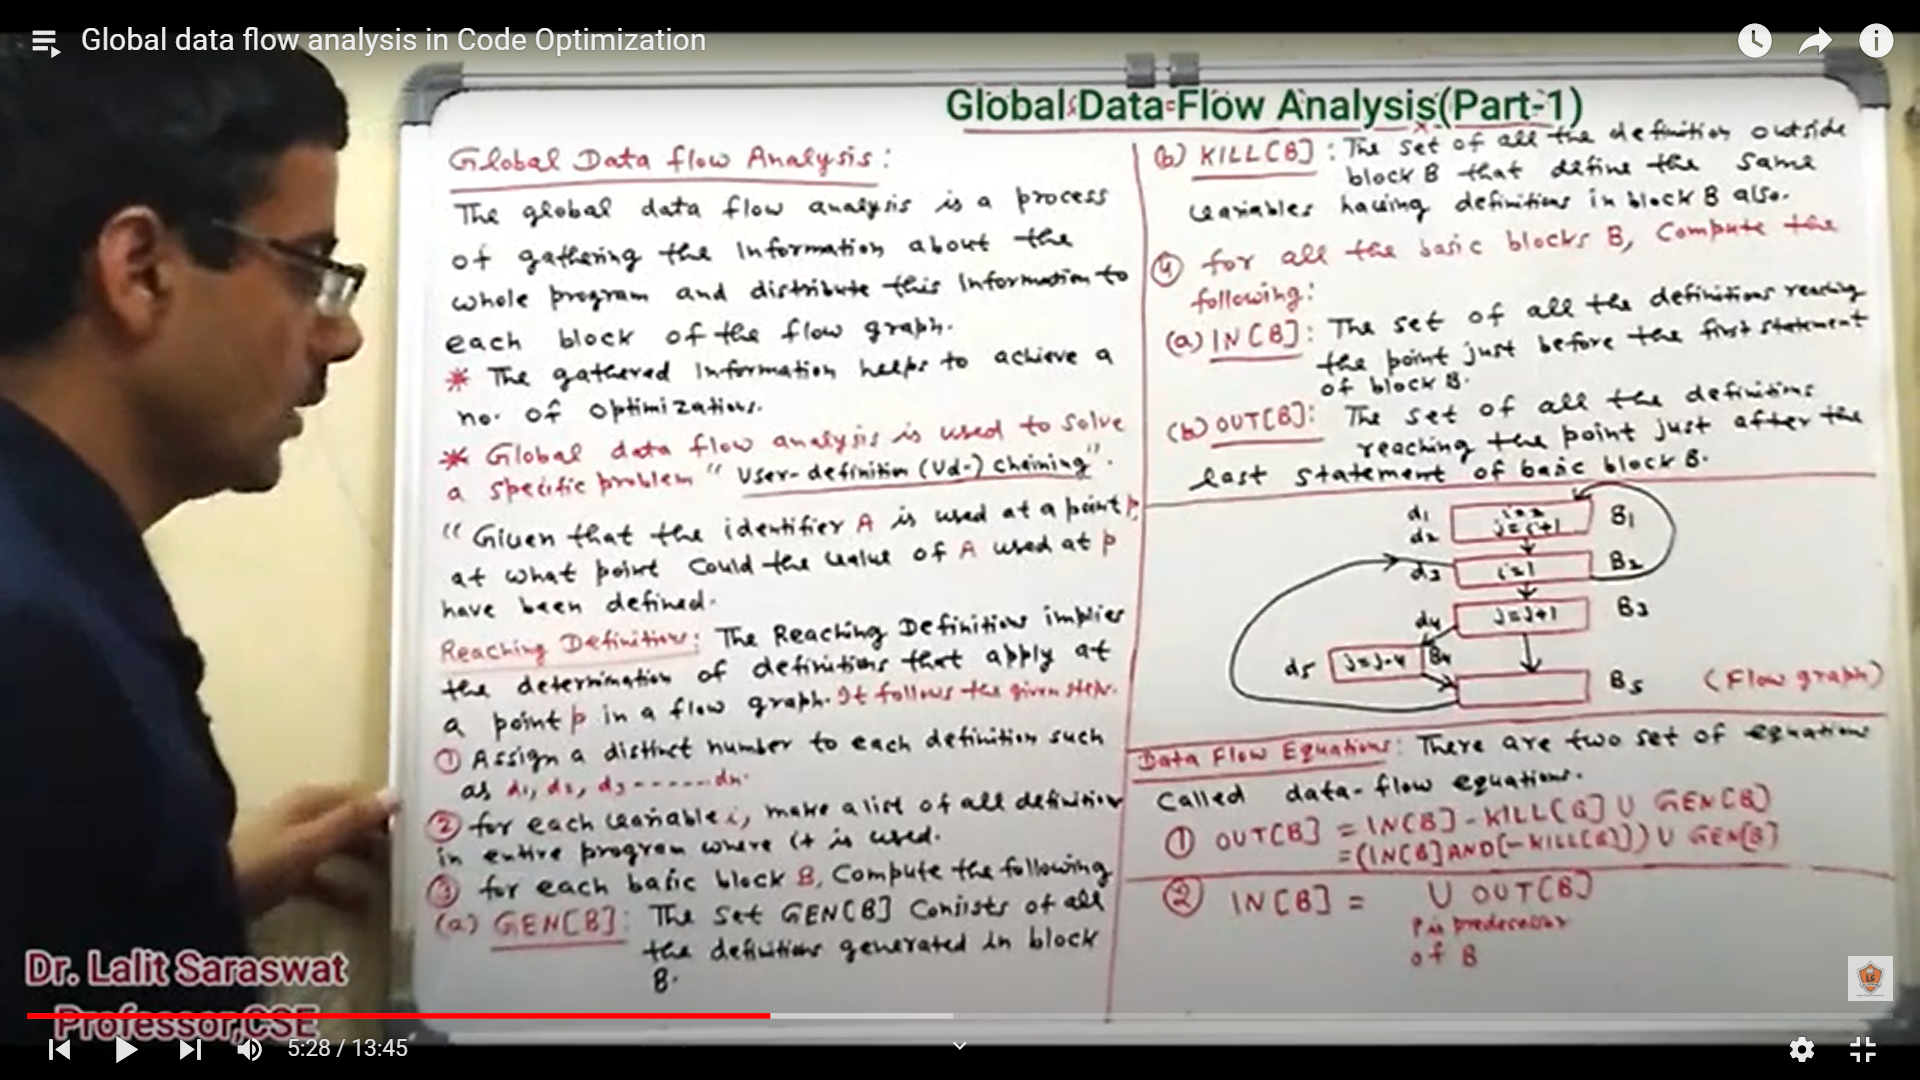 Global data flow analysis in Code Optimization
Global Data Flow Analysis(Part-1)
Global Data flow Analysis:
The global data flow analysis is a process
of gathering the Information about the
whole program and distribute this Information to
each block of the flow graph.
* The gathered Information helps to achieve a
no. of Optimizations.
* Global data flow analysis is used to solve
a specific problem "User-definition (Ud-) chaining".
"Given that the identifier A is used at a point p,
at what point could the value of A used at p
have been defined.
Reaching Definitions: The Reaching Definitions implies
the determination of definitions that apply at
a point p in a flow graph. It follows the given steps.
① Assign a distinct number to each definition such
as d1, d2, d3 ------ dn.
② for each variable i, make a list of all definition
in entire program where it is used.
③ for each basic block B, Compute the following
(a) GEN[B]: The set GEN[B] Consists of all
the definitions generated in block
B.
(b) KILL[B]: The set of all the definition outside
block B that define the same
variables having definitions in block B also.
④ for all the basic blocks B, Compute the
following:
(a) IN[B]: The set of all the definitions reaching
the point just before the first statement
of block B.
(b) OUT[B]: The set of all the definitions
reaching the point just after the
last statement of basic block B.
d1 i=2 B1
d2 j=i+1
d3 i=1 B2
d4 j=j+1 B3
d5 j=j-4 B4
B5 (Flow graph)
Data Flow Equations: There are two set of equations
Called data-flow equations.
① OUT[B] = IN[B] - KILL[B] U GEN[B]
= (IN[B] AND (-KILL[B])) U GEN[B]
② IN[B] = U OUT[B]
P is predecessor
of B
Dr. Lalit Saraswat
Professor,CSE
5:28 / 13:45